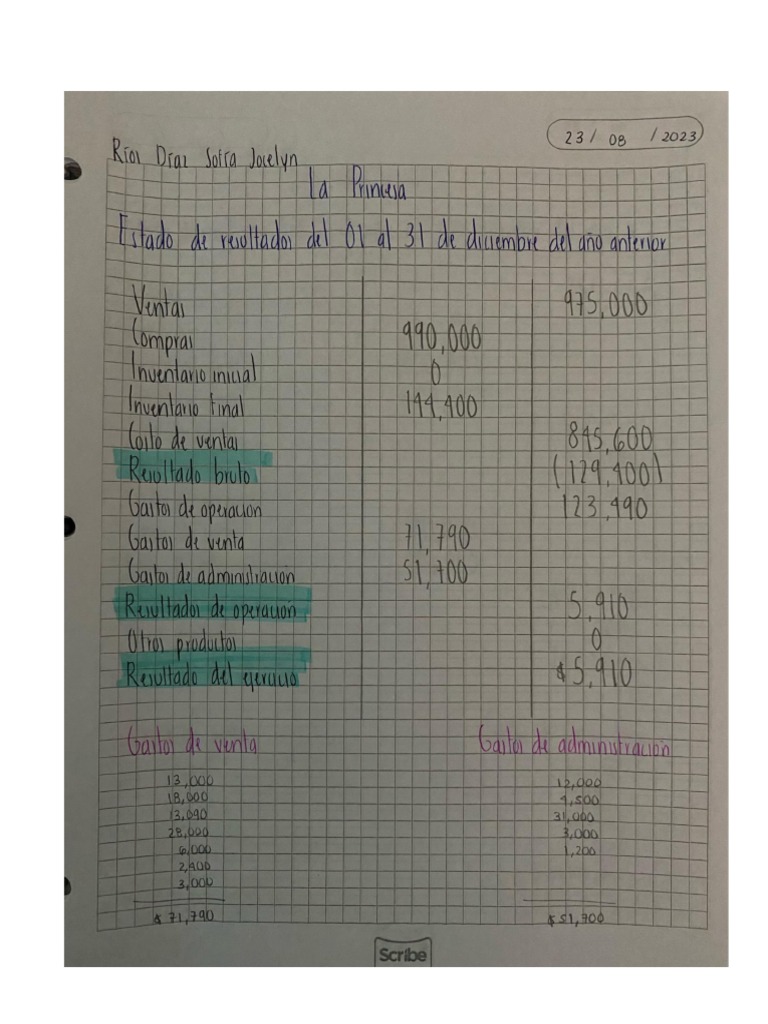 23/ 08 /2023
Ríos Díaz Sofía Jocelyn
La Princesa
Estado de resultados del 01 al 31 de diciembre del año anterior
Ventas 975,000
Compras 990,000
Inventario inicial 0
Inventario Final 144,400
Costo de ventas 845,600
Resultado bruto (129,400)
Gastos de operación 123,490
Gastos de venta 71,790
Gastos de administración 51,700
Resultados de operación 5,910
Otros productos 0
Resultado del ejercicio $5,910
Gastos de venta Gastos de administración
13,000 12,000
18,000 4,500
31,000
28,000 3,000
6,000 1,200
2,400
3,000
$ 71,790 $ 51,700
Scribe